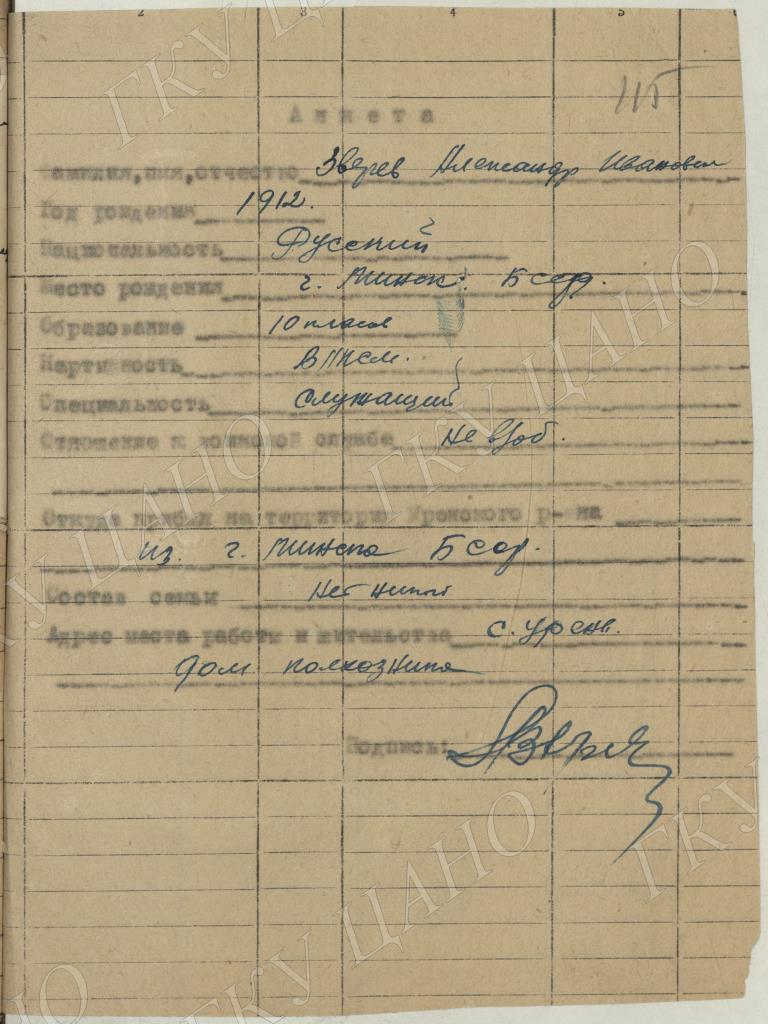 2 3 4 5
115
Анкета
Фамилия, имя, отчество Зверев Александр Иванович
Год рождения 1912.
Национальность Русский
Место рождения г. Минск. Бсср.
Образование 10 класов
Партийность ВЛКСМ.
Специальность служащий
Отношение к воинской службе не воб.
Откуда прибыл на территорию Уренского р-на
из. г. Минска Бсср.
Состав семьи нет никого
Адрес места работы и жительства с. Урень.
дом колхозника
Подпись: АЗверев
ГКУ ЦАНО